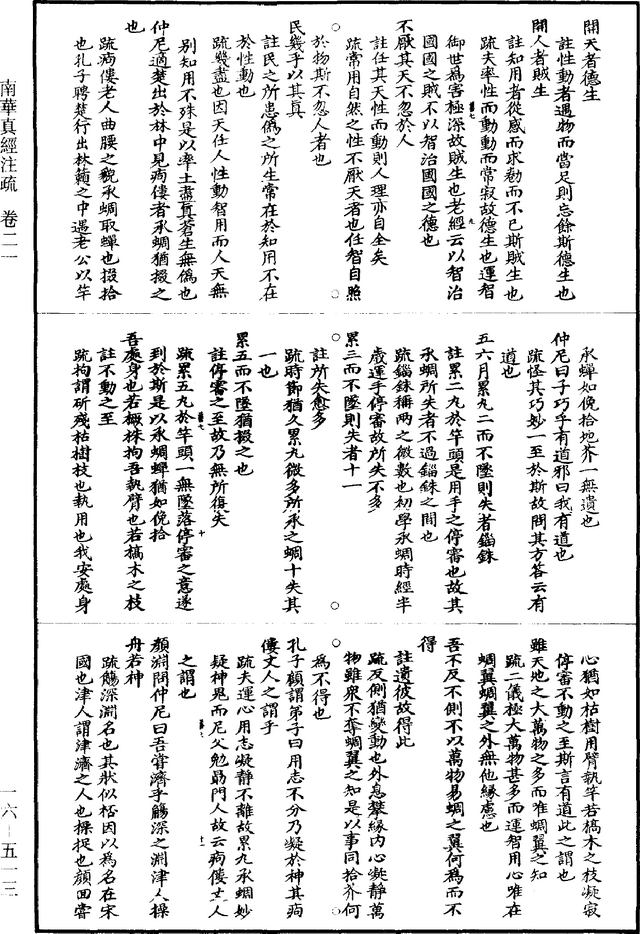 開天者德生
註性動者遇物而當足則忘餘斯德生也
開人者賊生
註知用者從感而求勌而不已斯賊生也
疏夫率性而動動而常寂故德生也運智
御世為害極深故賊生也老經云以智治
國國之賊不以智治國國之德也
不厭其天不忽於人
註任其天性而動則人理亦自全矣
疏常用自然之性不厭天者也任智自照
於物斯不忽人者也
民幾乎以其真
註民之所患偽之所生常在於知用不在
於性動也
疏幾盡也因天任人性動智用而人天無
別知用不殊是以率土盡真蒼生無偽也
仲尼適楚出於林中見痀僂者承蜩猶掇之
也
疏痀僂老人曲腰之貌承蜩取蟬也掇拾
也孔子聘楚行出林籟之中遇老公以竿
承蟬如俛拾地芥一無遺也
仲尼曰子巧乎有道邪曰我有道也
疏怪其巧妙一至於斯故問其方答云有
道也
五六月累丸二而不墜則失者錙銖
註累二丸於竿頭是用手之停審也故其
承蜩所失者不過錙銖之間也
疏錙銖稱兩之微數也初學承蜩時經半
歲運手停審故所失不多
累三而不墜則失者十一
註所失愈多
疏時節猶久累丸微多所承之蜩十失其
一也
累五而不墜猶掇之也
註停審之至故乃無所復失
疏累五丸於竿頭一無墜落停審之意遂
到於斯是以承蜩蟬猶如俛拾
吾處身也若橛株拘吾執臂也若槁木之枝
註不動之至
疏拘謂斫殘枯樹枝也執用也我安處身
心猶如枯樹用臂執竿若槁木之枝凝寂
停審不動之至斯言有道此之謂也
雖天地之大萬物之多而唯蜩翼之知
疏二儀極大萬物甚多而運智用心唯在
蜩翼蜩翼之外無他緣慮也
吾不反不側不以萬物易蜩之翼何為而不
得
註遺彼故得此
疏反側猶變動也外息攀緣內心凝靜萬
物雖衆不奪蜩翼之知是以事同拾芥何
為不得也
孔子顧謂弟子曰用志不分乃凝於神其痀
僂丈人之謂乎
疏夫運心用志凝靜不離故累丸承蜩妙
疑神鬼而尼父勉勗門人故云痀僂丈人
之謂也
顏淵問仲尼曰吾嘗濟乎觴深之淵津人操
舟若神
疏觴深淵名也其狀似桮因以為名在宋
國也津人謂津濟之人也操捉也顏回嘗
南華真經注疏 卷二一
一六-五一三